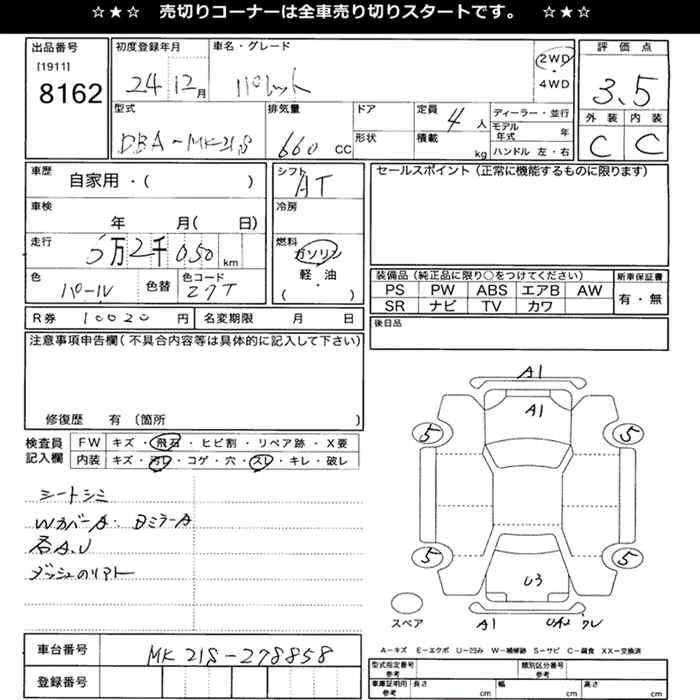 ☆★☆ 売切りコーナーは全車売り切りスタートです。 ☆★☆
出品番号 初度登録年月 車名・グレード 評価点
[1911]
8162 24 12月 パレット 2WD・4WD 3.5
型式 排気量 ドア 定員 4人 ディーラー・並行 外装 内装
DBA-MK21S 660 CC 形状 積載 kg モデル年式 年 C C
ハンドル 左・右
車歴 自家用・( ) シフト AT セールスポイント(正常に機能するものに限ります)
車検 年 月( 日) 冷房
走行 万2千050 km 燃料 ガソリン・軽油 ( )
色 パール 色替 色コード Z7T
装備品(純正品に限り○をつけてください) 新車保証書
PS PW ABS エアB AW 有・無
SR ナビ TV カワ
R券 10020 円 名変期限 月 日 後日品
注意事項申告欄(不具合内容等は具体的に記入して下さい)
修復歴 有 (箇所 )
検査員記入欄 FW キズ・飛石・ヒビ割・リペア跡・X要
内装 キズ・汚レ・コゲ・穴・スレ・キレ・破レ
シートシミ
WカバーA・DミラーA
各A.U
ダッシュのリアト
A1
A1
5 5
5 5
U3
スペア A1 UA2
A-キズ E-エクボ U-凹み W-補修跡 S-サビ C-腐食 XX-交換済
車台番号 MK21S-278858
登録番号
型式指定番号 参考 類別区分番号 参考
車庫証明用 参考 長さ cm 幅 cm 高さ cm